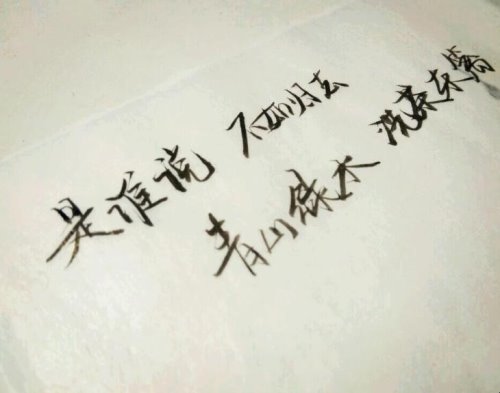 是谁说 不如归去
青山绿水 浣茶东篱